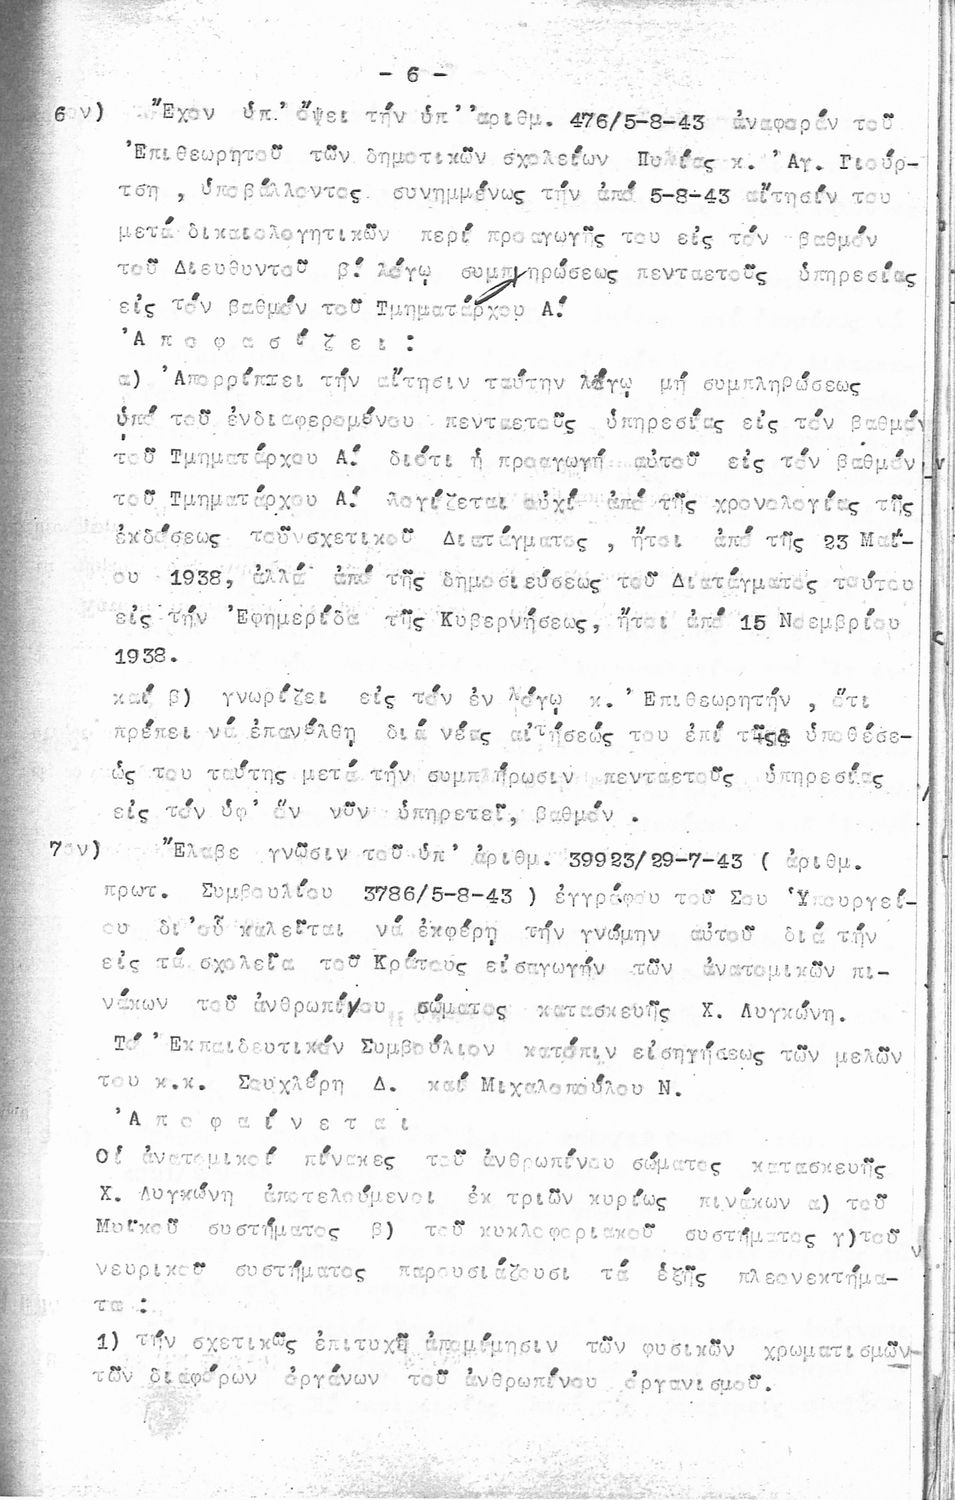 - 6 -
6ον) Ἔχον ὑπ' ὄψει τήν ὑπ' ἀριθμ. 476/5-8-43 ἀναφοράν τοῦ
Ἐπιθεωρητοῦ τῶν δημοτικῶν σχολείων Πυλίας κ. Ἀγ. Γιούρ-
τση , ὑποβάλλοντος συνημμένως τήν ἀπό 5-8-43 αἴτησίν του
μετά δικαιολογητικῶν περί προαγωγῆς του εἰς τόν βαθμόν
τοῦ Διευθυντοῦ β! λόγῳ συμπληρώσεως πενταετοῦς ὑπηρεσίας
εἰς τόν βαθμόν τοῦ Τμηματάρχου Α!
Ἀ π ο φ α σ ί ζ ε ι :
α) Ἀπορρίπτει τήν αἴτησιν ταύτην λόγῳ μή συμπληρώσεως
ὑπό τοῦ ἐνδιαφερομένου πενταετοῦς ὑπηρεσίας εἰς τόν βαθμόν
τοῦ Τμηματάρχου Α! διότι ἡ προαγωγή αὐτοῦ εἰς τόν βαθμόν
τοῦ Τμηματάρχου Α! λογίζεται οὐχί ἀπό τῆς χρονολογίας τῆς
ἐκδόσεως τοῦ σχετικοῦ Διατάγματος , ἤτοι ἀπό τῆς 23 Μαΐ-
ου 1938, ἀλλά ἀπό τῆς δημοσιεύσεως τοῦ Διατάγματος τούτου
εἰς τήν Ἐφημερίδα τῆς Κυβερνήσεως, ἤτοι ἀπό 15 Νοεμβρίου
1938.
καί β) γνωρίζει εἰς τόν ἐν λόγῳ κ. Ἐπιθεωρητήν , ὅτι
πρέπει νά ἐπανέλθῃ διά νέας αἰτήσεώς του ἐπί τῆς ὑποθέσε-
ώς του ταύτης μετά τήν συμπλήρωσιν πενταετοῦς ὑπηρεσίας
εἰς τόν ὑφ' ὅν νῦν ὑπηρετεῖ, βαθμόν .
7ον) Ἔλαβε γνῶσιν τοῦ ὑπ' ἀριθμ. 39923/29-7-43 ( ἀριθμ.
πρωτ. Συμβουλίου 3786/5-8-43 ) ἐγγράφου τοῦ Σου Ὑπουργεί-
ου δι' οὗ καλεῖται νά ἐκφέρῃ τήν γνώμην αὐτοῦ διά τήν
εἰς τά σχολεῖα τοῦ Κράτους εἰσαγωγήν τῶν ἀνατομικῶν πι-
νάκων τοῦ ἀνθρωπίνου σώματος κατασκευῆς Χ. Λυγκώνη.
Τό Ἐκπαιδευτικόν Συμβούλιον κατόπιν εἰσηγήσεως τῶν μελῶν
του κ.κ. Σουχλέρη Δ. καί Μιχαλοπούλου Ν.
Ἀ π ο φ α ί ν ε τ α ι
Οἱ ἀνατομικοί πίνακες τοῦ ἀνθρωπίνου σώματος κατασκευῆς
Χ. Λυγκώνη ἀποτελούμενοι ἐκ τριῶν κυρίως πινάκων α) τοῦ
Μυϊκοῦ συστήματος β) τοῦ κυκλοφοριακοῦ συστήματος γ)τοῦ
νευρικοῦ συστήματος παρουσιάζουσι τά ἑξῆς πλεονεκτήμα-
τα :
1) τήν σχετικῶς ἐπιτυχῆ ἀπομίμησιν τῶν φυσικῶν χρωματισμῶν
τῶν διαφόρων ὀργάνων τοῦ ἀνθρωπίνου ὀργανισμοῦ.